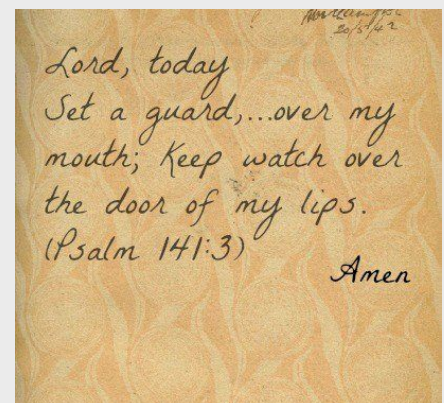 20/5/42
Lord, today
Set a guard,...over my
mouth; Keep watch over
the door of my lips.
(Psalm 141:3)
Amen